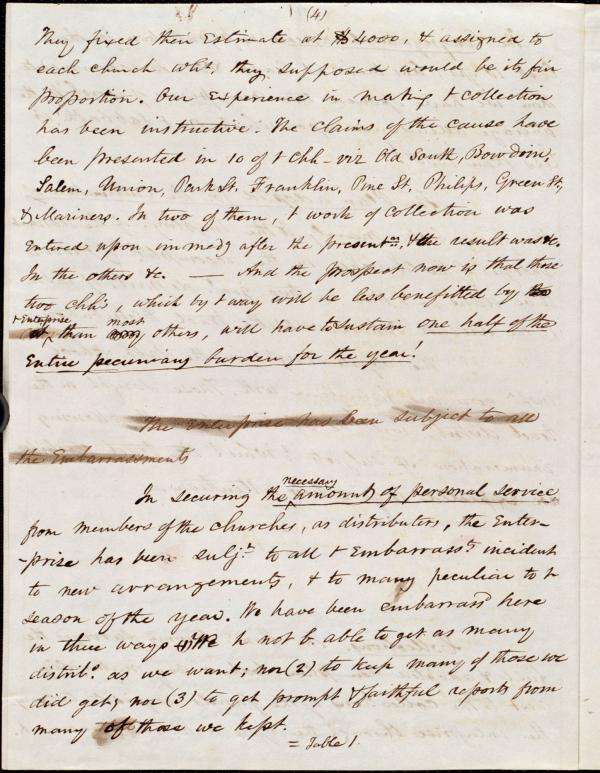 (4)
They fixed their Estimate at $4000, & assigned to
each church wht. they supposed would be its fair
proportion. Our Experience in making t collection
has been instructive. The claims of the cause have
been presented in 10 of t Chh - viz Old South, Bowdoin,
Salem, Union, Park St, Franklin, Pine St, Philips, Green St,
& Mariners. In two of them, t work of collection was
Entered upon immedy after the presentan, & the result was &c.
In the others &c. — And the prospect now is that those
two chhs, which by t way will be less benefitted by
t Enterprise than most others, will have to sustain one half of the
Entire pecuniary burden for the year!
The enterprise has been subject to all
the Embarrassments
In securing the necessary amount of personal service
from members of the churches, as distributers, the Enter-
-prise has been subjt to all t Embarrassts incident
to new arrangements, & to many peculiar to t
season of the year. We have been embarrassd here
in three ways We h not b. able to get as many
distribs as we want; nor (2) to keep many of those we
did get; nor (3) to get prompt & faithful reports from
many of those we kept.
= Table 1.